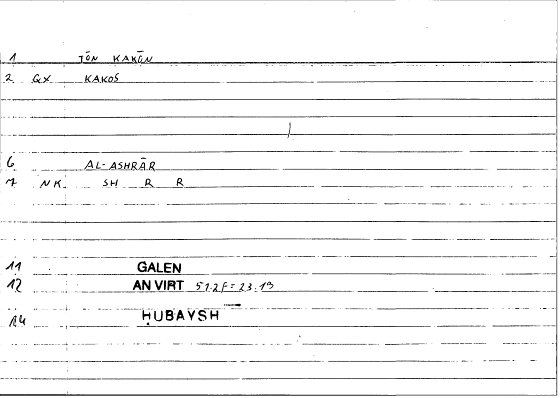 1 TŌN KAKŌN
2 GX KAKOS
6 AL-ASHRĀR
7 NK SH R R
11 GALEN
12 AN VIRT 51.2F = 23.19
14 ḤUBAYSH